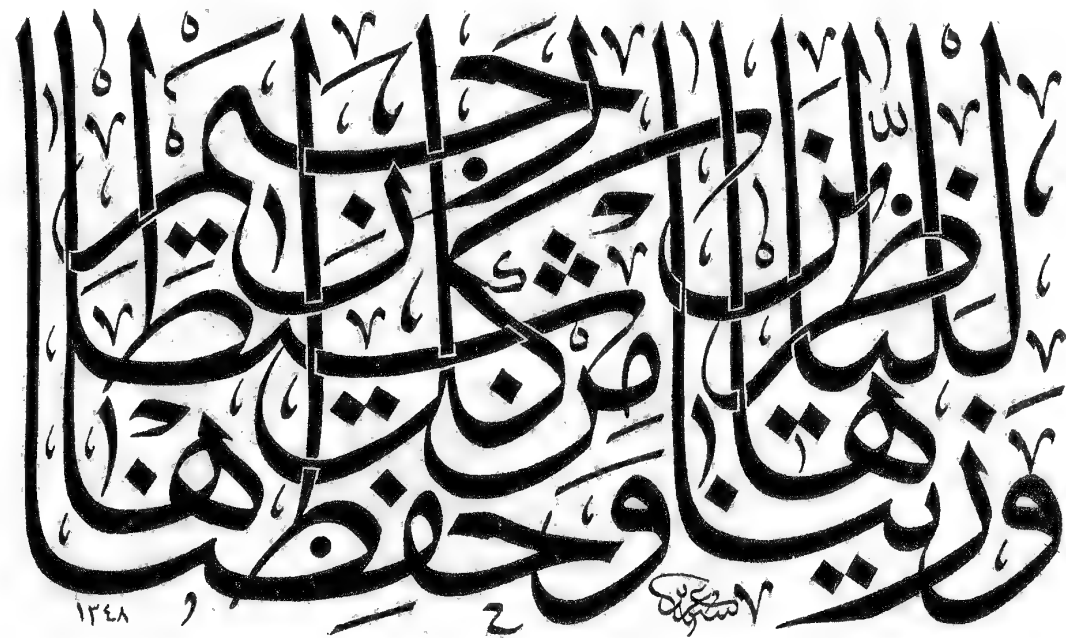 وَزَيَّنَّاهَا لِلنَّاظِرِينَ
وَحَفِظْنَاهَا مِنْ كُلِّ شَيْطَانٍ رَجِيمٍ
١٢٤٨